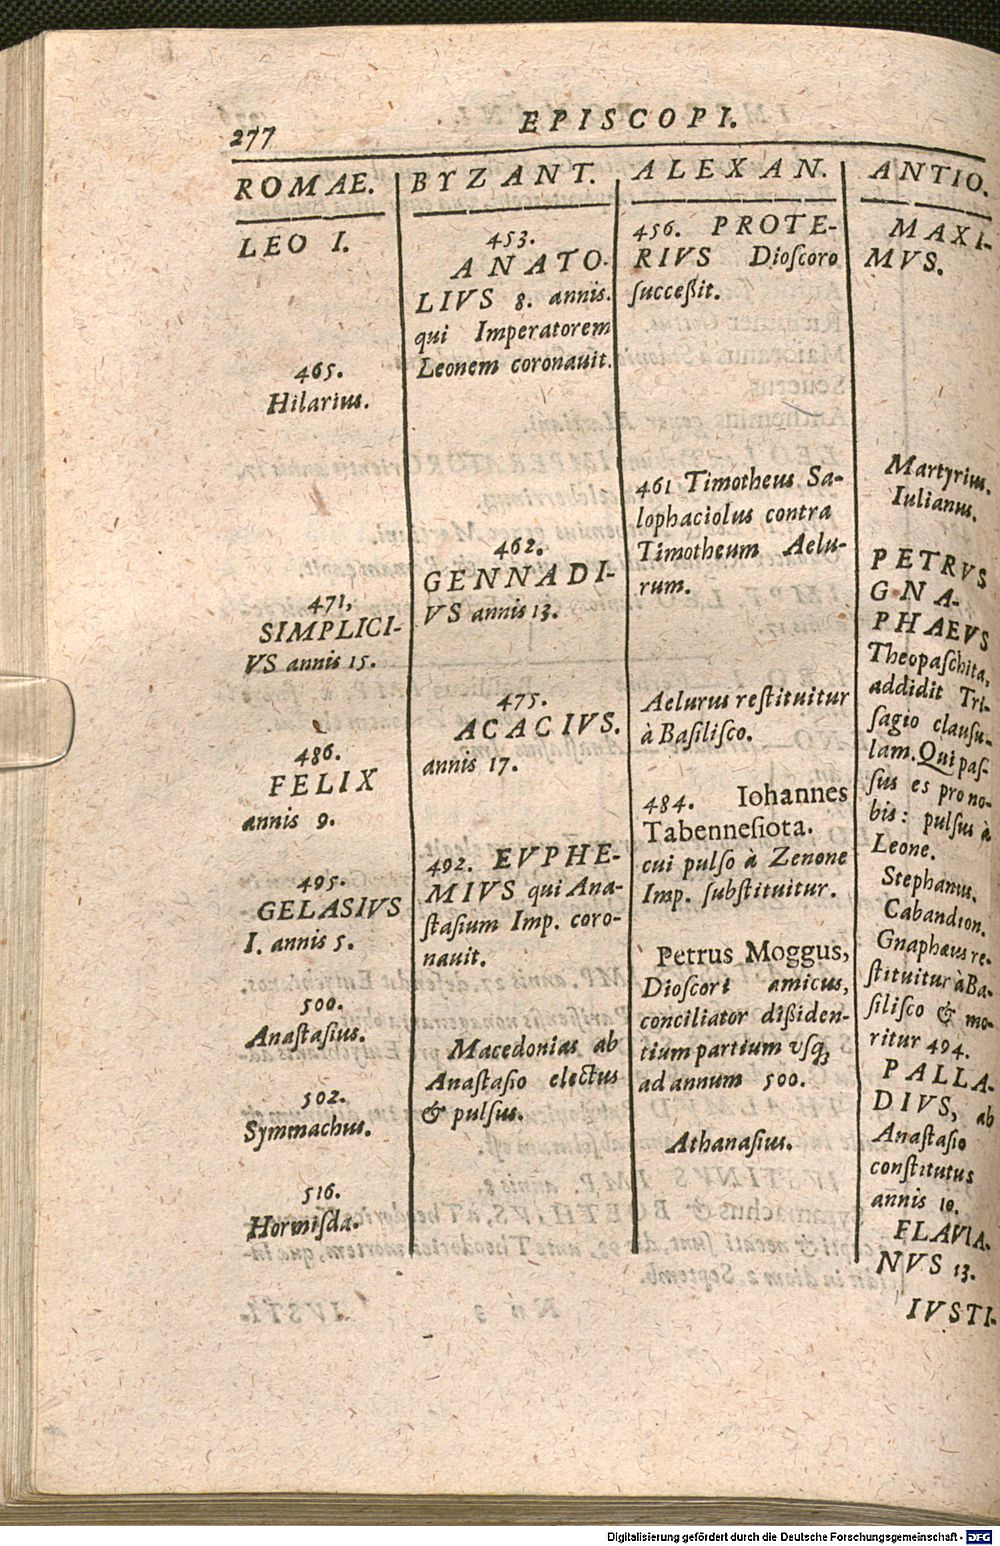 277
EPISCOPI.
ROMAE.
LEO I.
465.
Hilarius.
471,
SIMPLICI-
VS annis 15.
486.
FELIX
annis 9.
495.
GELASIVS
I. annis 5.
500.
Anaſtaſius.
502.
Symmachus.
516.
Hormiſda.
BYZANT.
453.
ANATO-
LIVS 8. annis.
qui Imperatorem
Leonem coronauit.
462.
GENNADI-
VS annis 13.
475.
ACACIVS.
annis 17.
492. EVPHE-
MIVS qui Ana-
ſtaſium Imp. coro-
nauit.
Macedonias ab
Anaſtaſio electus
& pulſus.
ALEXAN.
456. PROTE-
RIVS Dioſcoro
ſucceßit.
461 Timotheus Sa-
lophaciolus contra
Timotheum Aelu-
rum.
Aelurus reſtituitur
à Baſiliſco.
484. Iohannes
Tabenneſiota.
cui pulſo à Zenone
Imp. ſubſtituitur.
Petrus Moggus,
Dioſcori amicus,
conciliator dißiden-
tium partium vſq;
ad annum 500.
Athanaſius.
ANTIO.
MAXI-
MVS.
Martyrius.
Iulianus.
PETRVS
GNA-
PHAEVS
Theopaſchita,
addidit Tri-
ſagio clauſu-
lam. Qui paſ-
ſus es pro no-
bis: pulſus à
Leone.
Stephanus.
Cabandion.
Gnaphæus re-
ſtituitur à Ba-
ſiliſco & mo-
ritur 494.
PALLA-
DIVS, ab
Anaſtaſio
conſtitutus
annis 10.
FLAVIA-
NVS 13.
IVSTI-
Digitalisierung gefördert durch die Deutsche Forschungsgemeinschaft - DFG